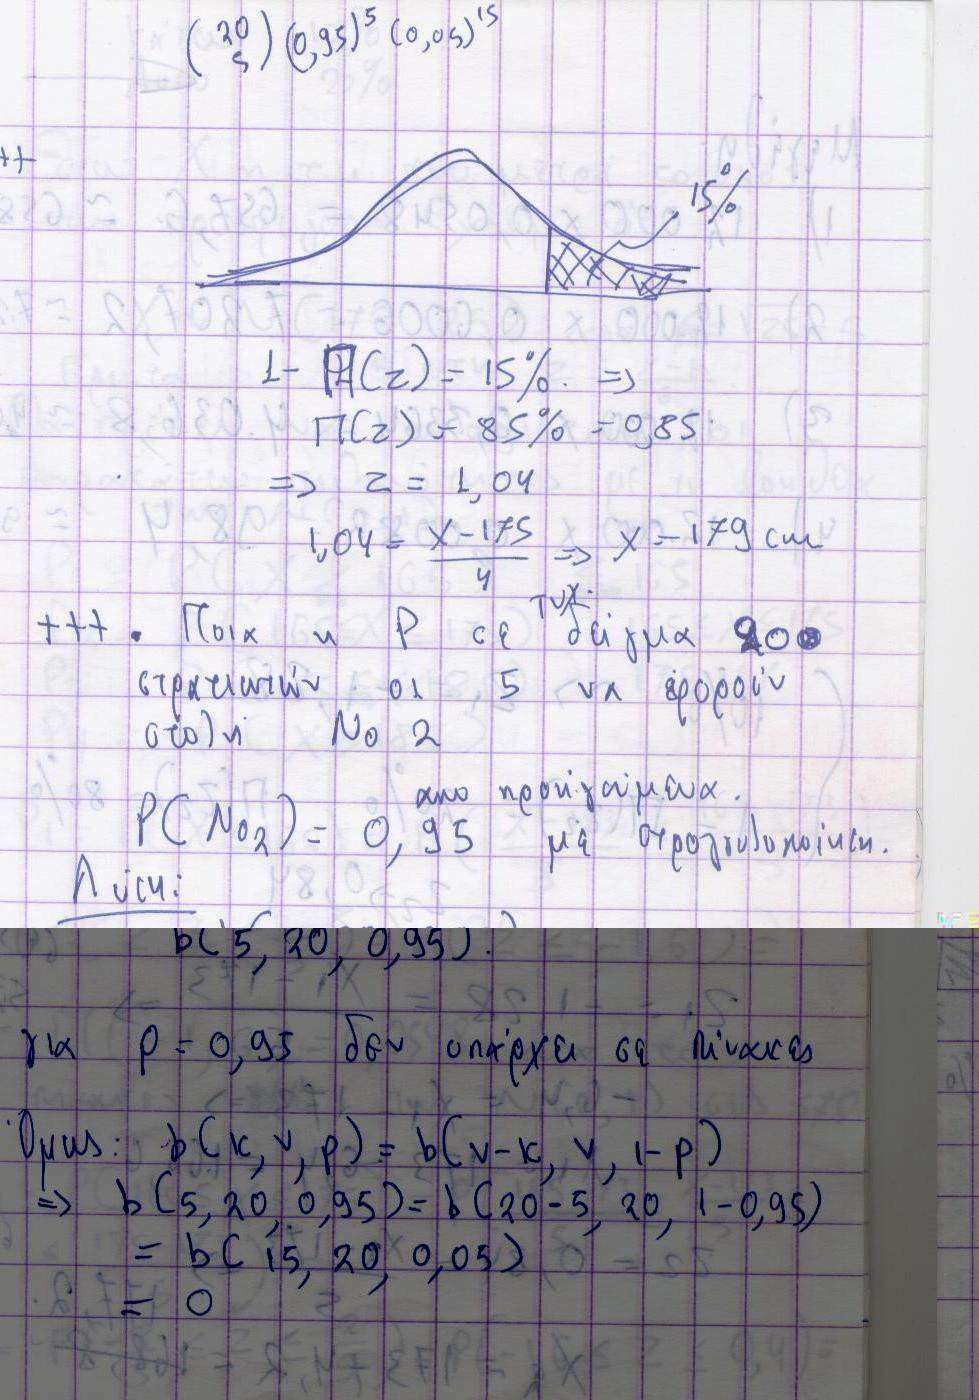 (20 5) (0,95)^5 (0,05)^15
++
15%
1 - Π(z) = 15% =>
Π(z) = 85% = 0,85
=> z = 1,04
1,04 = (x - 175)/4 => x = 179 cm
+++ . Ποια η P σε τυχ. δείγμα 20
στρατιωτών οι 5 να φορούν
στολή No 2
από προηγούμενα.
P(No2) = 0,95 με στρογγυλοποίηση.
Λύση:
b(5, 20, 0,95).
για p = 0,95 δεν υπάρχει σε πίνακες
Όμως: b(κ, ν, p) = b(ν-κ, ν, 1-p)
=> b(5, 20, 0,95) = b(20-5, 20, 1-0,95)
= b(15, 20, 0,05)
= 0